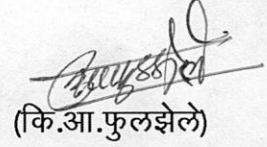 (कि.आ.फुलझेले)